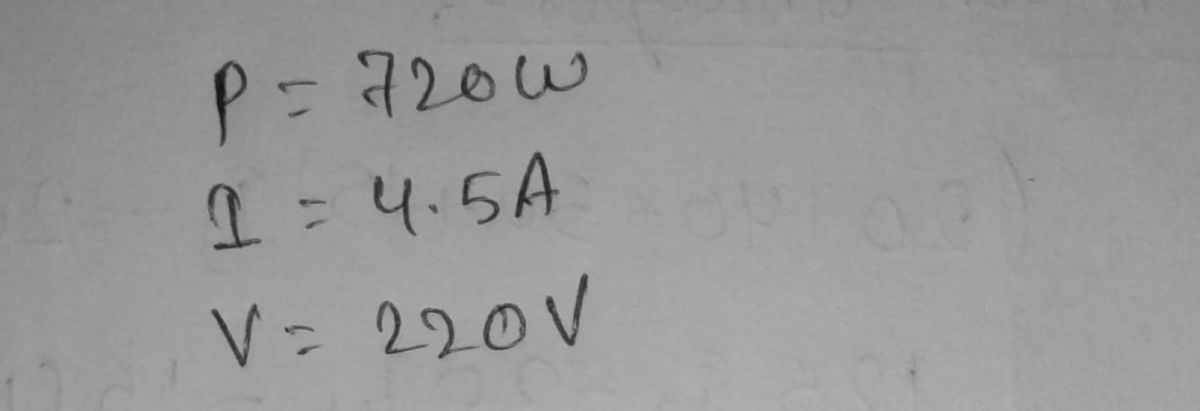 P = 720W
I = 4.5A
V = 220V